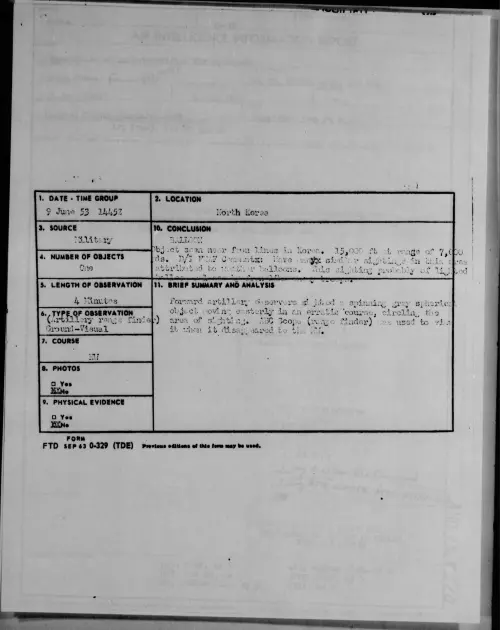 1. DATE - TIME GROUP
9 June 53 1445Z
2. LOCATION
North Korea
3. SOURCE
Military
10. CONCLUSION
BALLOON
Object seen near front lines in Korea. 15,000 ft at range of 7,000
yds. D/I Comments: Have many similar sightings in this area
attributed to weather balloons. This sighting probably of lighted
4. NUMBER OF OBJECTS
One
5. LENGTH OF OBSERVATION
4 Minutes
11. BRIEF SUMMARY AND ANALYSIS
Forward artillery observers sighted a spinning gray spherical
object moving easterly in an erratic course, circling the
area of sighting. Scope (range finder) was used to view
it when it disappeared to the
6. TYPE OF OBSERVATION
(Artillery range finder)
Ground-Visual
7. COURSE
8. PHOTOS
□ Yes
No
9. PHYSICAL EVIDENCE
□ Yes
No
FORM
FTD SEP 63 0-329 (TDE) Previous editions of this form may be used.